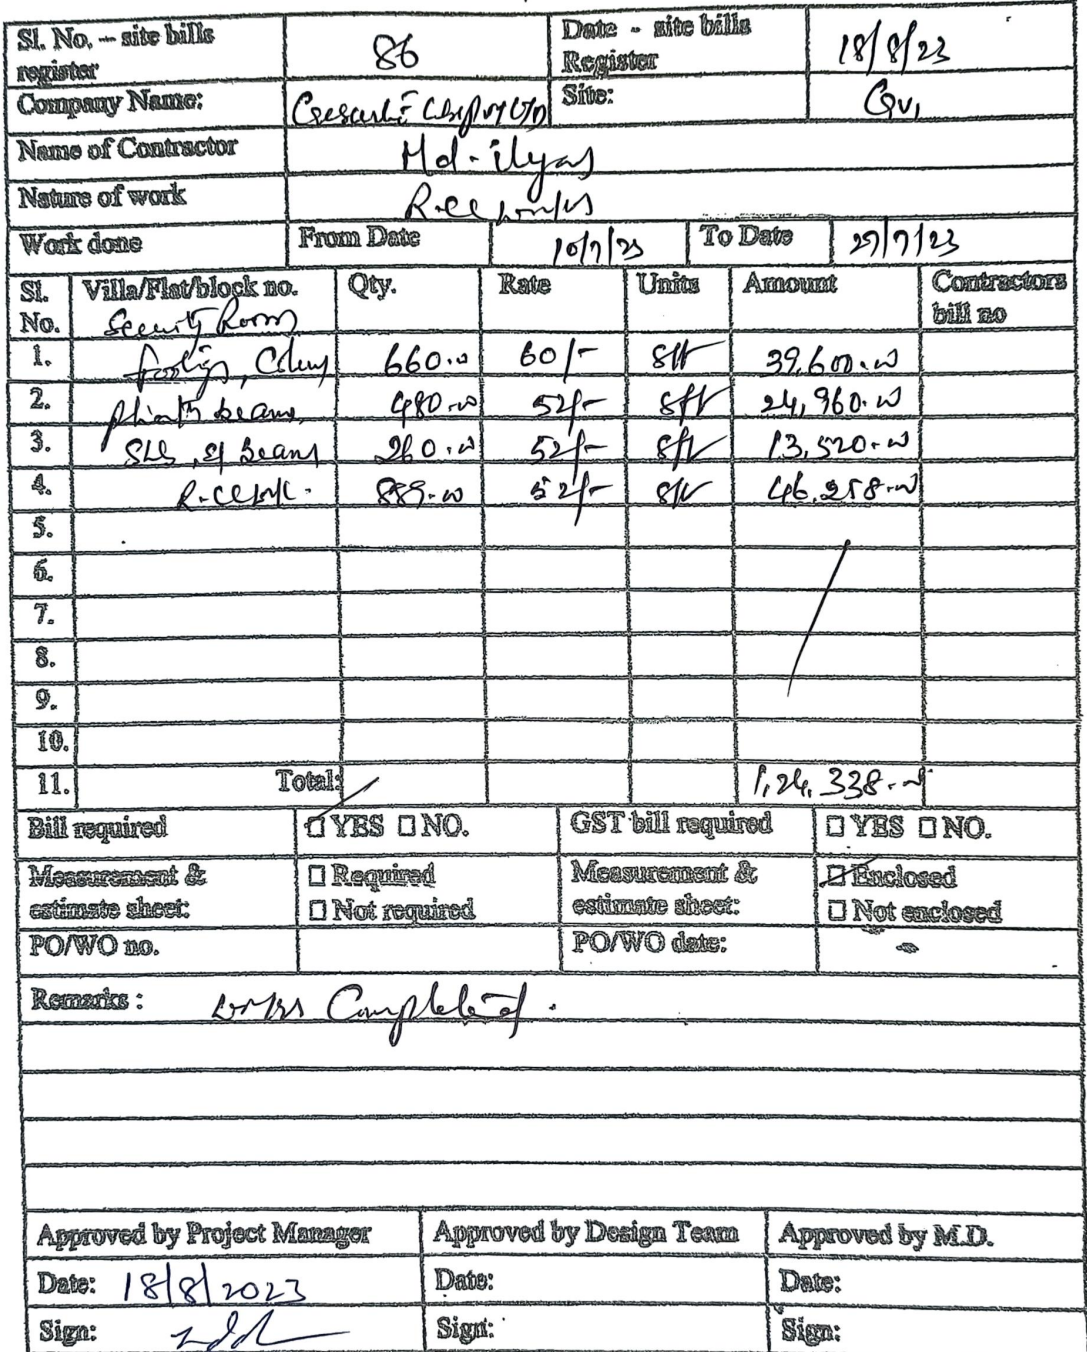 Sl. No. – site bills register 86 Date - site bills Register 18/8/23
Company Name: Site: GV1
Name of Contractor Md. ilyas
Nature of work R.cc works
Work done From Date 10/7/23 To Date 27/7/23
Sl. No. Villa/Flat/block no. Qty. Rate Units Amount Contractors bill no
Security Room
1. footings, 660.00 60/- sft 39,600.00
2. plinth beams, 480.00 52/- sft 24,960.00
3. beams 260.00 52/- sft 13,520.00
4. R.cc 52/- sft
5.
6.
7.
8.
9.
10.
11. Total: 1,24,338.00
Bill required ☑ YES ☐ NO. GST bill required ☐ YES ☐ NO.
Measurement & estimate sheet: ☐ Required ☐ Not required Measurement & estimate sheet: ☑ Enclosed ☐ Not enclosed
PO/WO no. PO/WO date:
Remarks : works Completed.
Approved by Project Manager Approved by Design Team Approved by M.D.
Date: 18/8/2023 Date: Date:
Sign: Sign: Sign: